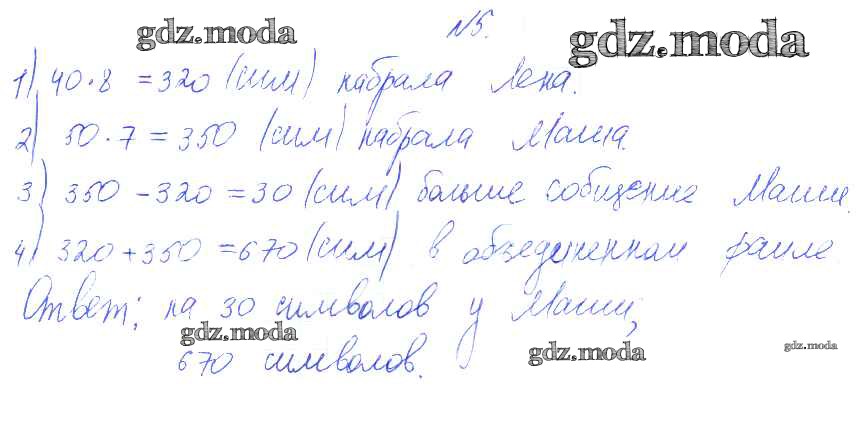 gdz.moda
№5.
gdz.moda
1) 40·8 = 320 (сим) набрала Лена.
2) 50·7 = 350 (сим) набрала Маша.
3) 350 - 320 = 30 (сим) больше сообщение Маши.
4) 320 + 350 = 670 (сим) в объединенном файле
Ответ: на 30 символов у Маши,
gdz.moda
670 символов.
gdz.moda
gdz.moda